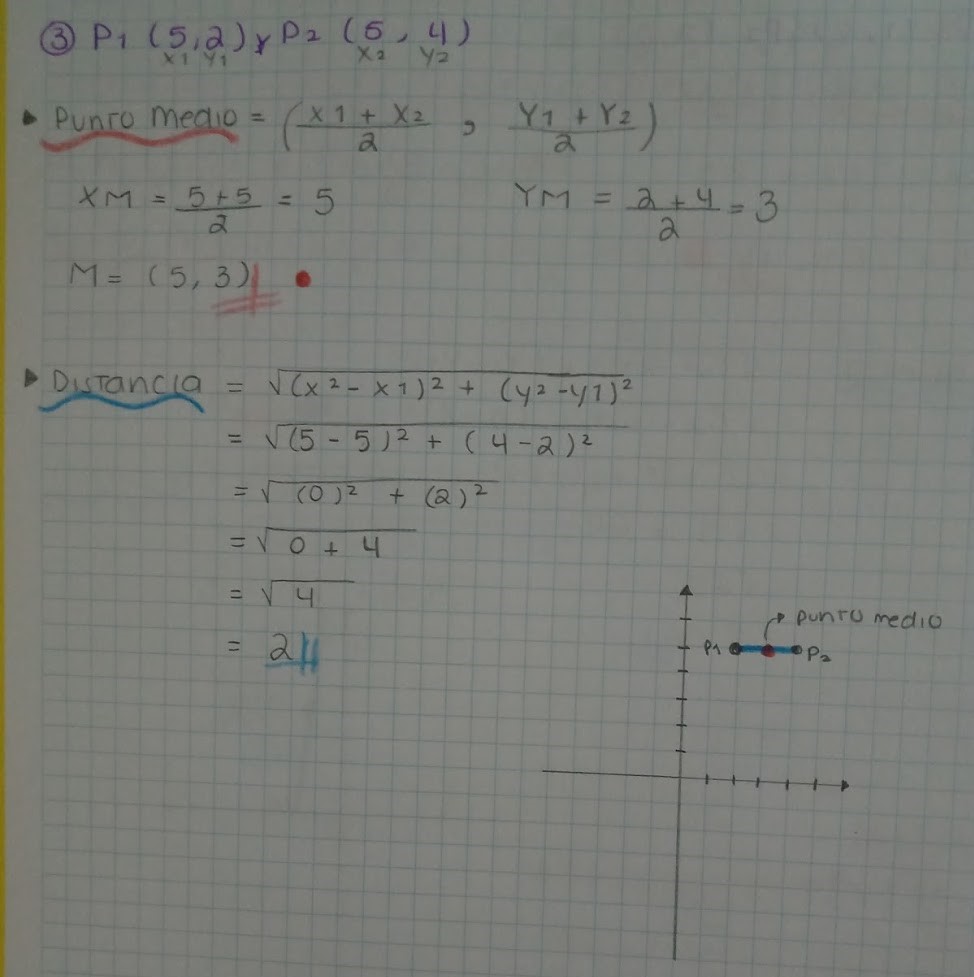 ③ P1 (5,2) y P2 (5, 4)
X1 Y1 X2 Y2
▶ Punto medio = (X1 + X2 / 2 , Y1 + Y2 / 2)
XM = 5+5 / 2 = 5 YM = 2+4 / 2 = 3
M = (5, 3)
▶ Distancia = √(x2 - x1)² + (y2 - y1)²
= √(5 - 5)² + (4 - 2)²
= √(0)² + (2)²
= √0 + 4
= √4
= 2
Punto medio
P1 P2